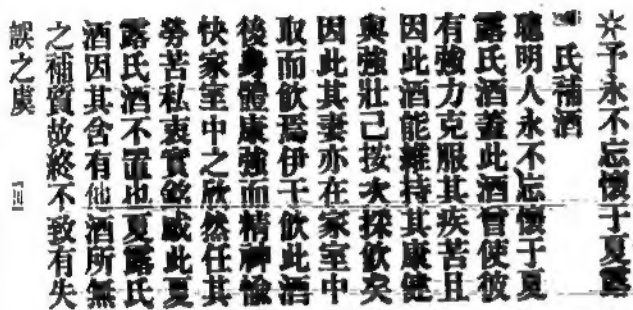 ☼予永不忘懷于夏露
氏補酒
聰明人永不忘懷于夏
露氏酒蓋此酒曾使彼
有強力克服其疾苦且
因此酒能維持其康健
與強壯己按次採飲矣
因此其妻亦在家室中
取而飲焉伊于飲此酒
後身體康強而精神愉
快家室中之欣然任其
勞苦私衷實銘感此夏
露氏酒不置也夏露氏
酒因其含有他酒所無
之補質故終不致有失
誤之虞